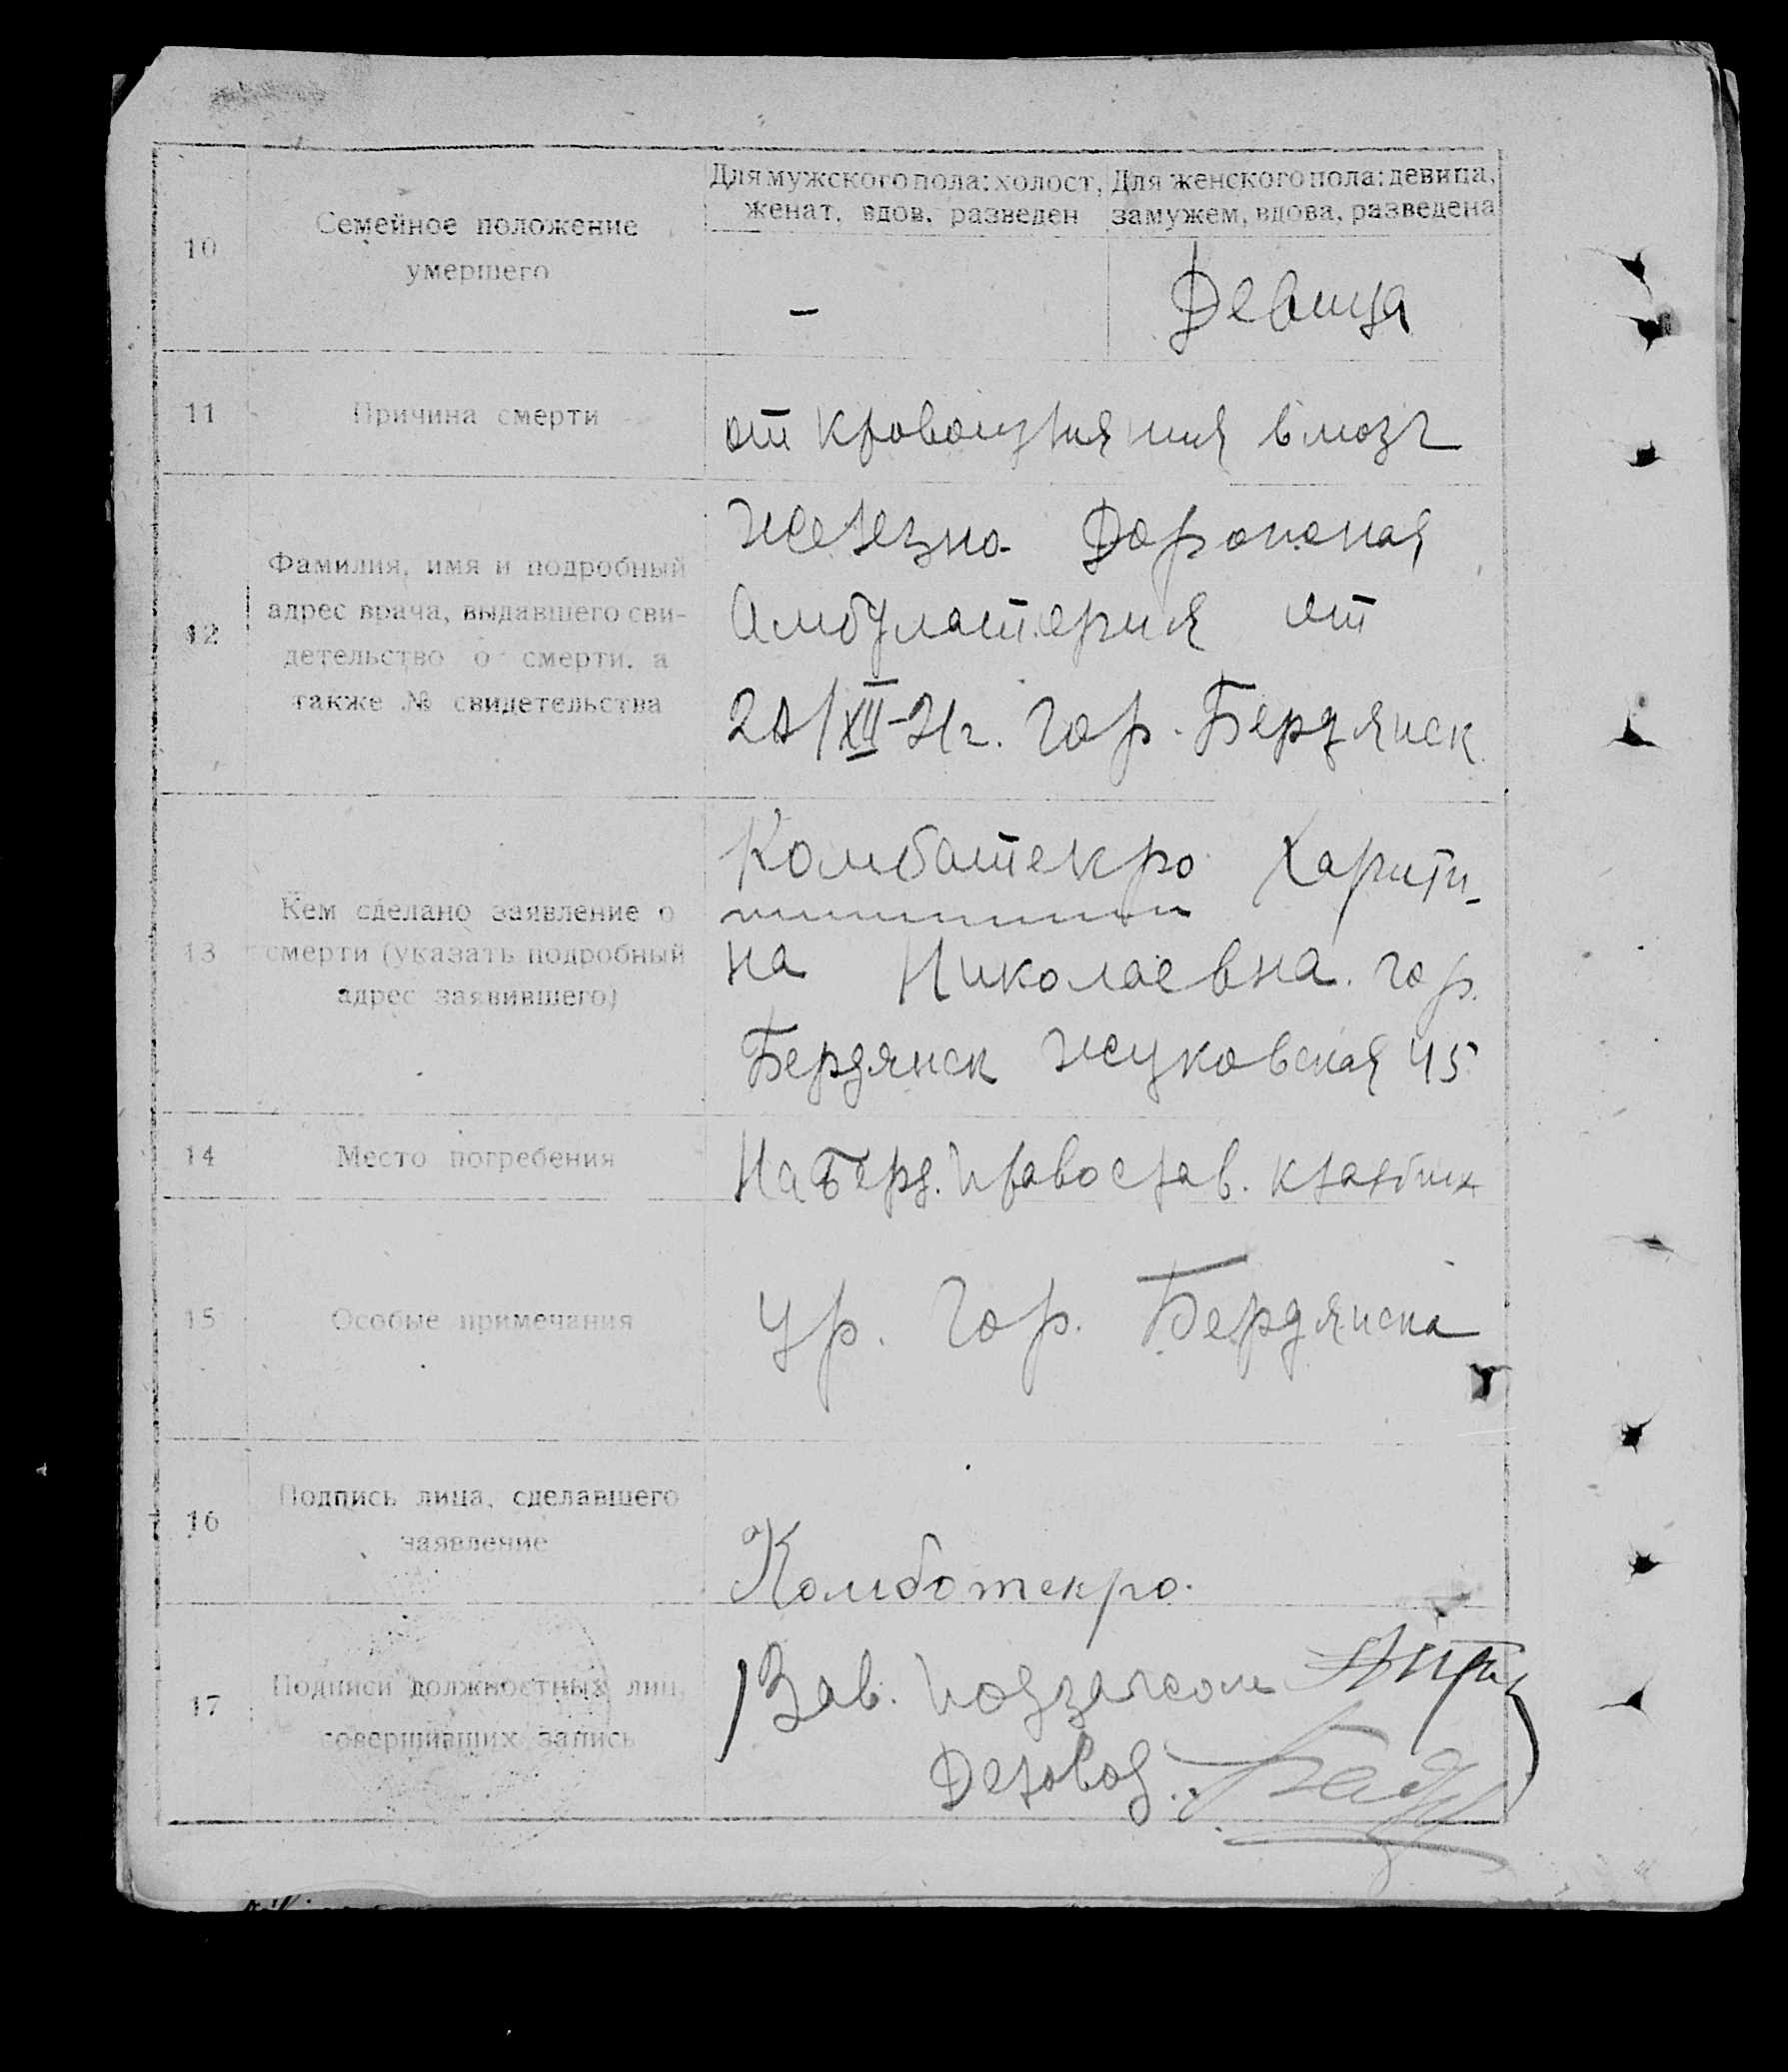 Для мужского пола: холост, женат, вдов, разведен
Для женского пола: девица, замужем, вдова, разведена
10
Семейное положение
умершего
-
Девица
11
Причина смерти
от кровоизлияния в мозг
12
Фамилия, имя и подробный
адрес врача, выдавшего сви-
детельство о смерти, а
также № свидетельства
Железно-Дорожная
Амбулатория от
/XII-21г. гор. Бердянск
13
Кем сделано заявление о
смерти (указать подробный
адрес заявившего)
Комботекро Харити-
на Николаевна. гор.
Бердянск Жуковская 45
14
Место погребения
На Берд. Православ. кладбищ
15
Особые примечания
ур. гор. Бердянска
16
Подпись лица, сделавшего
заявление
Комботекро.
17
Подписи должностных лиц,
совершивших запись
Зав. подзагсом
Деловод.